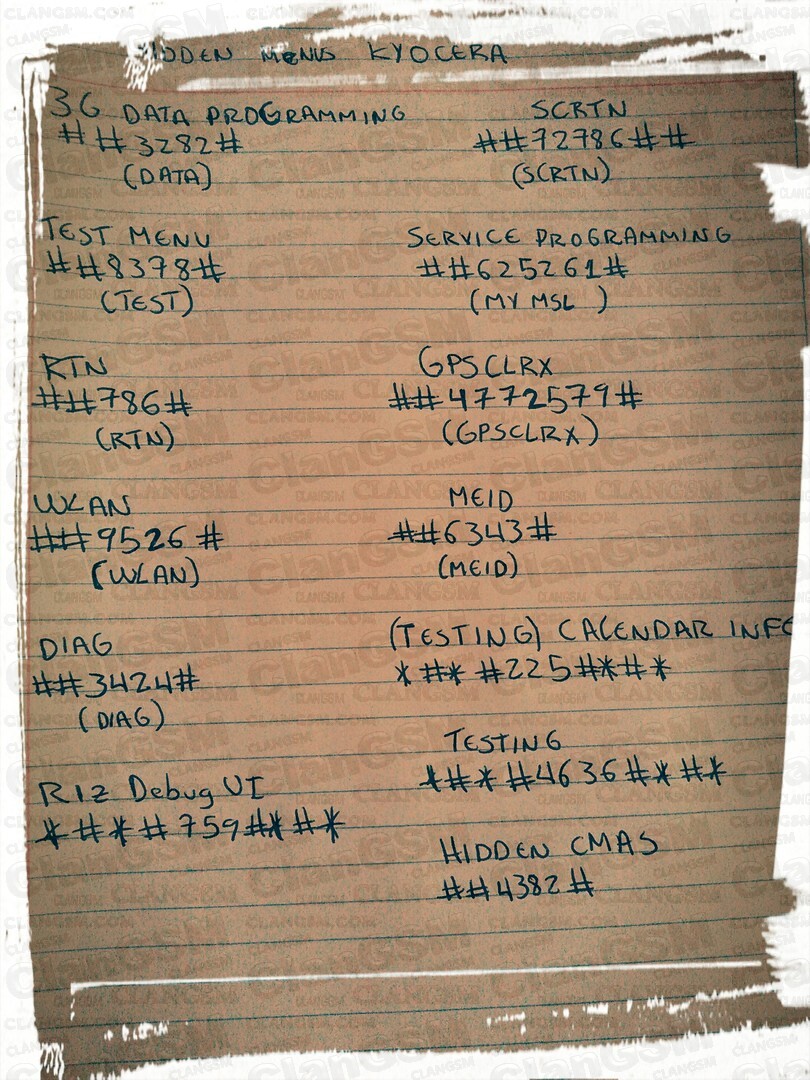 HIDDEN MENUS KYOCERA
3G DATA PROGRAMMING
##3282#
(DATA)
TEST MENU
##8378#
(TEST)
RTN
##786#
(RTN)
WLAN
##9526#
(WLAN)
DIAG
##3424#
(DIAG)
RIZ Debug UI
*#*#759#*#*
SCRTN
##72786##
(SCRTN)
SERVICE PROGRAMMING
##625261#
(MY MSL )
GPSCLRX
##4772579#
(GPSCLRX)
MEID
##6343#
(MEID)
(TESTING) CALENDAR INFO
*#*#225#*#*
TESTING
*#*#4636#*#*
HIDDEN CMAS
##4382#
CLANGSM.COM
ClanGSM